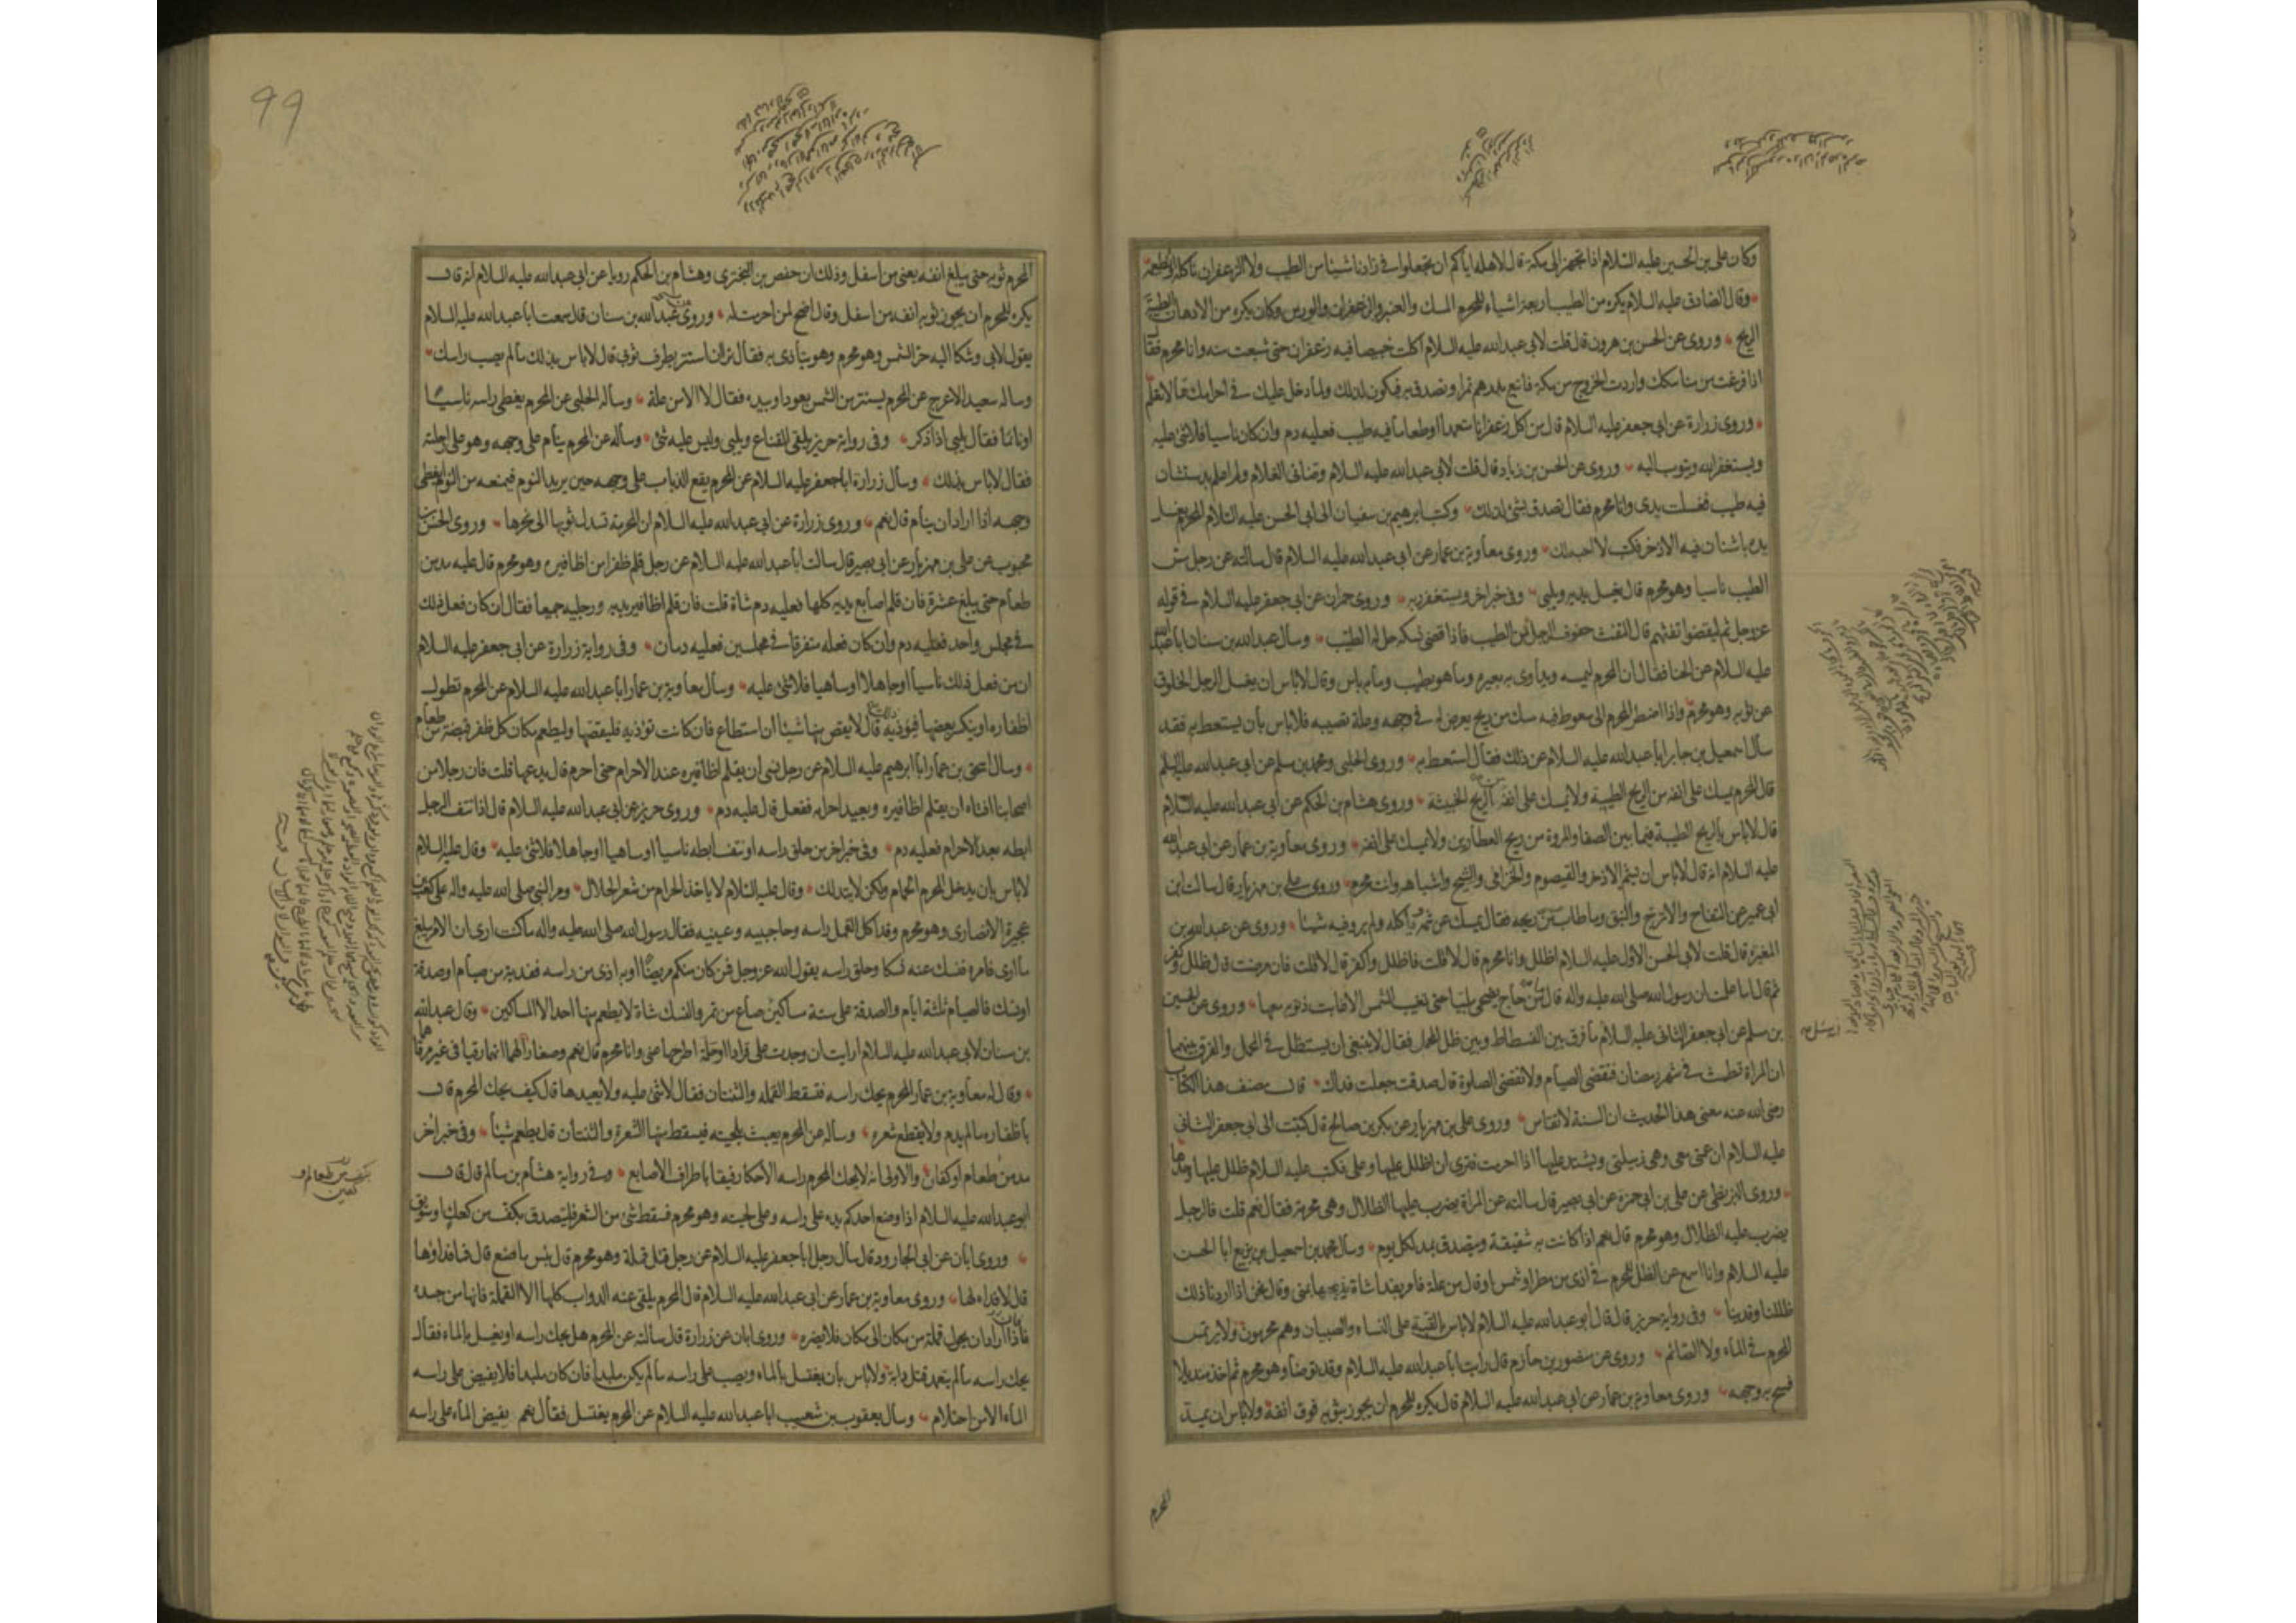 وكان علي بن الحسين عليه السلام اذا تجهز الى مكة قال لاهله اياكم ان تجعلوا في زادنا شيئا من الطيب ولا الزعفران ناكله او نطعمه
وقال الصادق عليه السلام يكره من الطيب اربعة اشياء للمحرم المسك والعنبر والزعفران والورس وكان يكره من الادهان الطيبة
الريح وروى عن الحسن بن هرون قال قلت لابي عبدالله عليه السلام اكلت خبيصا فيه زعفران حتى شبعت منه وانا محرم فقال
اذا فرغت من مناسكك واردت الخروج من مكة فابتع بدرهم تمرا وتصدق به فيكون لذلك ولما دخل عليك في احرامك مما لا تعلم
وروى زرارة عن ابي جعفر عليه السلام قال من اكل زعفرانا متعمدا او طعاما فيه طيب فعليه دم وان كان ناسيا فلا شئ عليه
ويستغفر الله ويتوب اليه وروى عن الحسن بن زياد قال قلت لابي عبدالله عليه السلام وضاني الغلام ولم اعلم بدستشان
فيه طيب فغسلت يدى وانا محرم فقال تصدق بشئ لذلك وكتب ابرهيم بن سفيان الى ابي الحسن عليه السلام المحرم يغسل
يده باشنان فيه الاذخر فكتب لا احبه لك وروى معاوية بن عمار عن ابي عبدالله عليه السلام قال سالته عن رجل مس
الطيب ناسيا وهو محرم قال يغسل يديه ويلبى وفى خبر اخر ويستغفر ربه وروى حمران عن ابي جعفر عليه السلام في قوله
عز وجل ثم ليقضوا تفثهم قال التفث حفوف الرجل من الطيب فاذا قضى نسكه حل له الطيب وسال عبدالله بن سنان ابا عبدالله
عليه السلام عن الحنا فقال ان المحرم ليمسه ويداوى به بعيره وما هو بطيب وما به باس وقال لا باس ان يغسل الرجل الخلوق
عن ثوبه وهو محرم واذا اضطر المحرم الى سعوط فيه مسك من ريح يعرض له في وجهه وعلة تصيبه فلا باس بان يستعط به فقد
سال اسمعيل بن جابر ابا عبدالله عليه السلام عن ذلك فقال استعط به وروى الحلبى ومحمد بن مسلم عن ابي عبدالله عليه السلم
قال المحرم يمسك على انفه من الريح الطيبة ولا يمسك على انفه من الريح الخبيثة وروى هشام بن الحكم عن ابي عبدالله عليه السلام
قال لا باس بالريح الطيبة فيما بين الصفا والمروة من ريح العطارين ولا يمسك على انفه وروى معاوية بن عمار عن ابي عبدالله
عليه السلام انه قال لا باس ان يشم الاذخر والقيصوم والخزامى والشيح واشباهه وانت محرم وروى على بن مهزيار قال سالت ابن
ابي عمير عن التفاح والاترج والنبق وما طاب ريحه فقال يمسك عن شمه وياكله ولم يرو فيه شيئا وروى عن عبدالله بن
المغيرة قال قلت لابي الحسن الاول عليه السلام اظلل وانا محرم قال لا قلت فاظلل واكفر قال لا قلت فان مرضت قال ظلل وكفر
ثم قال اما علمت ان رسول الله صلى الله عليه واله قال ما من حاج يضحى ملبيا حتى تغيب الشمس الا غابت ذنوبه معها وروى عن الحسين
بن مسلم عن ابي جعفر الثانى عليه السلام ما فرق بين الفسطاط وبين ظل المحمل فقال لا ينبغى ان يستظل في المحمل والفرق بينهما
ان المراة تطمث في شهر رمضان فتقضى الصيام ولا تقضى الصلوة قال صدقت جعلت فداك قال مصنف هذا الكتاب
رضى الله عنه معنى هذا الحديث ان السنة لا تقاس وروى على بن مهزيار عن بكر بن صالح قال كتبت الى ابي جعفر الثانى
عليه السلام ان عمتى معى وهى زميلتى ويشتد عليها اذا احرمت فترى ان اظلل عليها وعلى فكتب عليه السلام ظلل عليها وحدها
وروى البزنطى عن على بن ابي حمزة عن ابي بصير قال سالته عن المراة يضرب عليها الظلال وهى محرمة فقال نعم قلت فالرجل
يضرب عليه الظلال وهو محرم قال نعم اذا كانت به شقيقة ويتصدق بمد لكل يوم وسال محمد بن اسمعيل بن بزيع ابا الحسن
عليه السلام وانا اسمع عن الظل للمحرم في اذى من مطر او شمس او قال من علة فامر بفداء شاة يذبحها بمنى وقال نحن اذا اردنا ذلك
ظللنا وفدينا وفى رواية حريز قال قال ابو عبدالله عليه السلام لا باس بالقبة على النساء والصبيان وهم محرمون ولا يرتمس
المحرم في الماء ولا الصائم وروى عن منصور بن حازم قال رايت ابا عبدالله عليه السلام وقد توضأ وهو محرم ثم اخذ منديلا
فمسح به وجهه وروى معاوية بن عمار عن ابي عبدالله عليه السلام قال يكره للمحرم ان يجوز بثوبه فوق انفه ولا باس ان يمد
المحرم
99
المحرم ثوبه حتى يبلغ انفه يعنى من اسفل وذلك ان حفص بن البخترى وهشام بن الحكم رويا عن ابي عبدالله عليه السلام انه قال
يكره للمحرم ان يجوز ثوبه انفه من اسفل وقال اضح لمن احرمت له وروى عبدالله بن سنان قال سمعت ابا عبدالله عليه السلام
يقول لابي وشكا اليه حر الشمس وهو محرم وهو يتأذى به فقال ترى ان استتر بطرف ثوبى قال لا باس بذلك ما لم يصب راسك
وساله سعيد الاعرج عن المحرم يستتر من الشمس بعود او بيده فقال لا الا من علة وسأله الحلبى عن المحرم يغطى راسه ناسيا
او نائما فقال يلبى اذا ذكر وفى رواية حريز يلقى القناع ويلبى وليس عليه شئ وسأله عن المحرم ينام على وجهه وهو على راحلته
فقال لا باس بذلك وسال زرارة ابا جعفر عليه السلام عن المحرم يقع الذباب على وجهه حين يريد النوم فيمنعه من النوم ايغطى
وجهه اذا اراد ان ينام قال نعم وروى زرارة عن ابي عبدالله عليه السلام ان المحرمة تسدل ثوبها الى نحرها وروى الحسن بن
محبوب عن على بن مهزيار عن ابي بصير قال سالت ابا عبدالله عليه السلام عن رجل قلم ظفرا من اظافيره وهو محرم قال عليه مد من
طعام حتى يبلغ عشرة فان قلم اصابع يديه كلها فعليه دم شاة قلت فان قلم اظافير يديه ورجليه جميعا فقال ان كان فعل ذلك
في مجلس واحد فعليه دم وان كان فعله متفرقا في مجلسين فعليه دمان وفى رواية زرارة عن ابي جعفر عليه السلام
ان من فعل ذلك ناسيا او جاهلا او ساهيا فلا شئ عليه وسأل معاوية بن عمار ابا عبدالله عليه السلام عن المحرم تطول
اظفاره او ينكسر بعضها فيؤذيه قال لا يقص منها شيئا ان استطاع فان كانت تؤذيه فليقصها وليطعم مكان كل ظفر قبضة من طعام
وسال اسحق بن عمار ابا ابرهيم عليه السلام عن رجل نسى ان يقلم اظافيره عند الاحرام حتى احرم قال يدعها قلت فان رجلا من
اصحابنا افتاه ان يقلم اظافيره ويعيد احرامه ففعل قال عليه دم وروى حريز عن ابي عبدالله عليه السلام قال اذا نتف الرجل
ابطه بعد الاحرام فعليه دم وفى خبر اخر من حلق راسه او نتف ابطه ناسيا او ساهيا او جاهلا فلا شئ عليه وقال عليه السلام
لا باس بان يدخل المحرم الحمام ولكن لا يتدلك وقال عليه السلام لا ياخذ الحرام من شعر الحلال ومر النبى صلى الله عليه واله على كعب بن
عجرة الانصارى وهو محرم وقد اكل القمل راسه وحاجبيه وعينيه فقال رسول الله صلى الله عليه واله ما كنت ارى ان الامر يبلغ
ما ارى فامره فنسك عنه نسكا وحلق راسه يقول الله عز وجل فمن كان منكم مريضا او به اذى من راسه ففدية من صيام او صدقة
او نسك فالصيام ثلثة ايام والصدقة على ستة مساكين صاع من تمر والنسك شاة لا يطعم منها احد الا المساكين وقال عبدالله
بن سنان لابي عبدالله عليه السلام ارايت ان وجدت على قرادا او حلمة اطرحها عنى وانا محرم قال نعم وصغار لهما انهما رقيا في غير مرقاهما
وقال له معاوية بن عمار المحرم يحك راسه فتسقط القمله والثنتان فقال لا شئ عليه ولا يعيدها قال كيف يحك المحرم قال
باظفاره ما لم يدم ولا يقطع شعره وسأله عن المحرم يعبث بلحيته فيسقط منها الشعرة والثنتان قال يطعم شيئا وفى خبر اخر
مد من طعام او كفان والاولى انه لا يحك المحرم راسه الا حكا رفيقا باطراف الاصابع وفى رواية هشام بن سالم قال قال
ابو عبدالله عليه السلام اذا وضع احدكم يده على راسه وعلى لحيته وهو محرم فسقط شئ من الشعر فليتصدق بكف من كعك او سويق
وروى ابان عن ابي الجارود قال سأل رجل ابا جعفر عليه السلام عن رجل قتل قملة وهو محرم قال بئس ما صنع قال فما فداؤها
قال لا فداء لها وروى معاوية بن عمار عن ابي عبدالله عليه السلام قال المحرم يلقى عنه الدواب كلها الا القملة فانها من جسده
فاذا اراد ان يحول قملة من مكان الى مكان فلا يضره وروى ابان عن زرارة قال سالته عن المحرم هل يحك راسه او يغسل بالماء فقال
يحك راسه ما لم يتعمد قتل دابة ولا باس بان يغتسل بالماء ويصب على راسه ما لم يكن ملبدا فان كان ملبدا فلا يفيض على راسه
الماء الا من احتلام وسال يعقوب بن شعيب ابا عبدالله عليه السلام عن المحرم يغتسل فقال نعم يفيض الماء على راسه